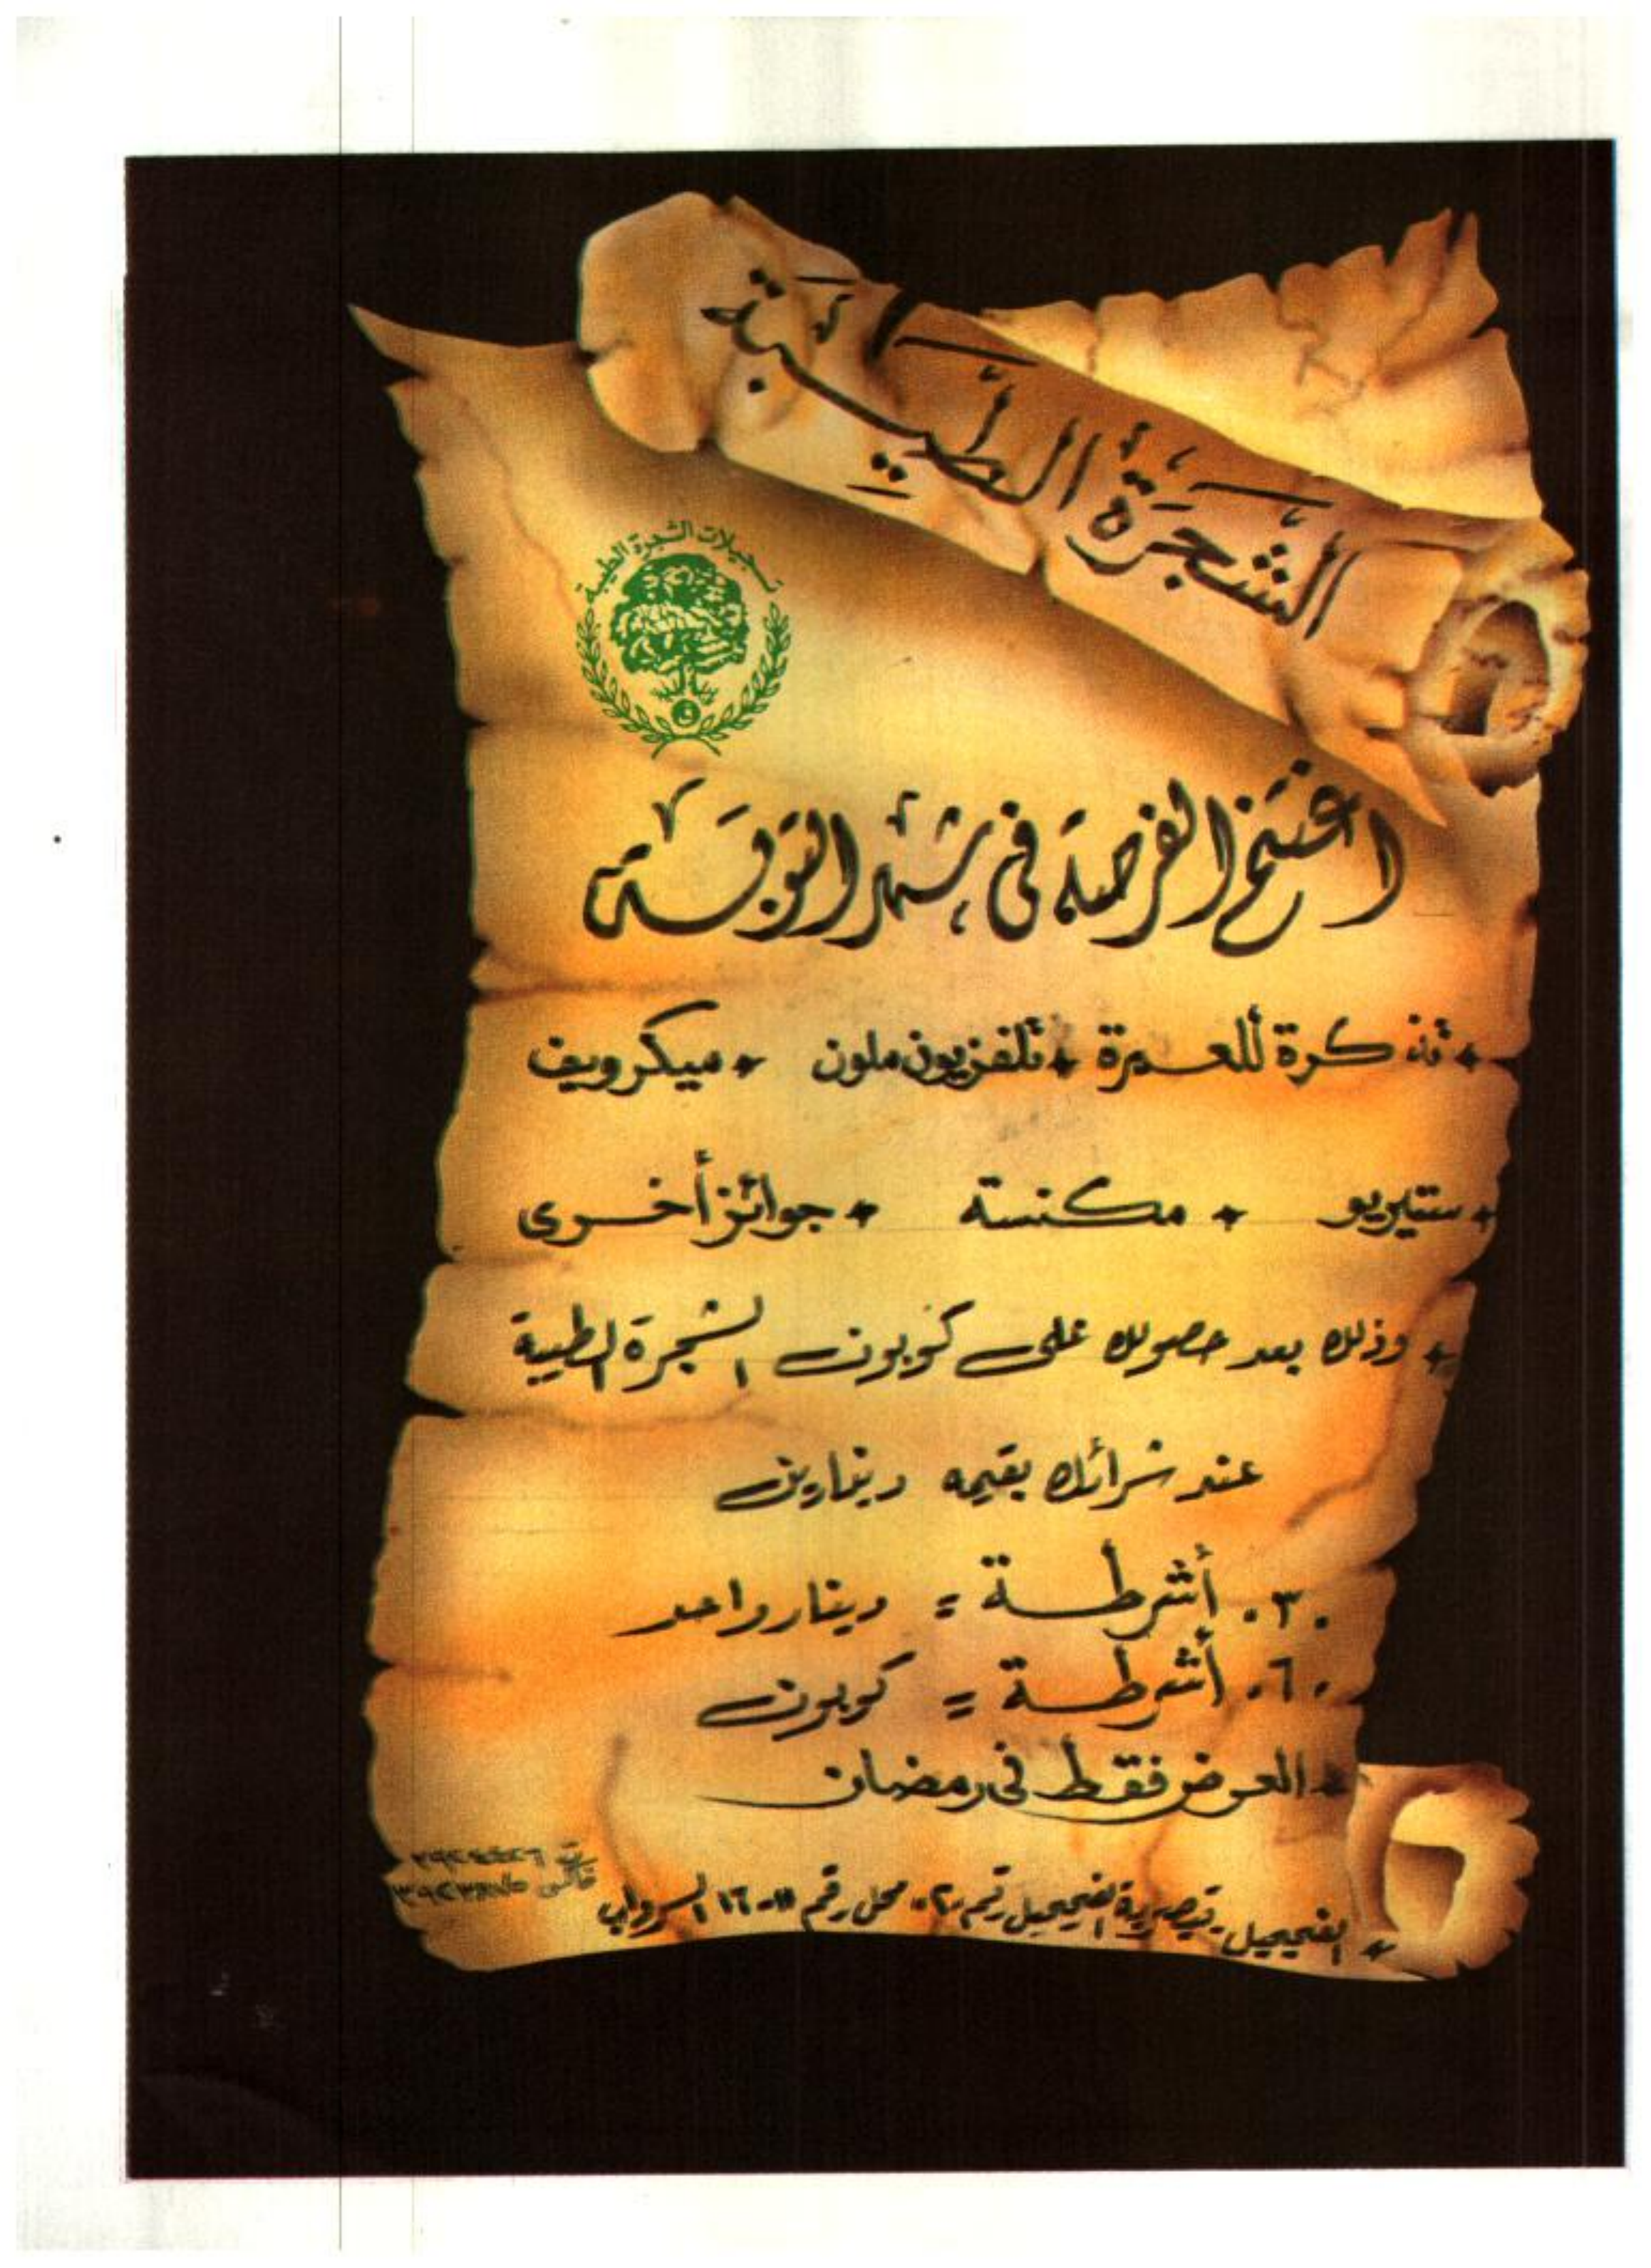 الشجرة الطيبة
تسجيلات الشجرة الطيبة
اغتنم الفرصة في شهر التوبة
* تذكرة للعمرة * تلفزيون ملون * ميكرويف
* ستيريو * مكنسة * جوائز أخرى
* وذلك بعد حصولك على كوبون الشجرة الطيبة
عند شرائك بقيمه دينارين
٣٠ أشرطة = دينار واحد
٦٠ أشرطة = كوبون
* العرض فقط في رمضان
* الفحيحيل - قيصرية الفحيحيل رقم ٢٠ محل رقم ١٦ السرداب
ت
فاكس